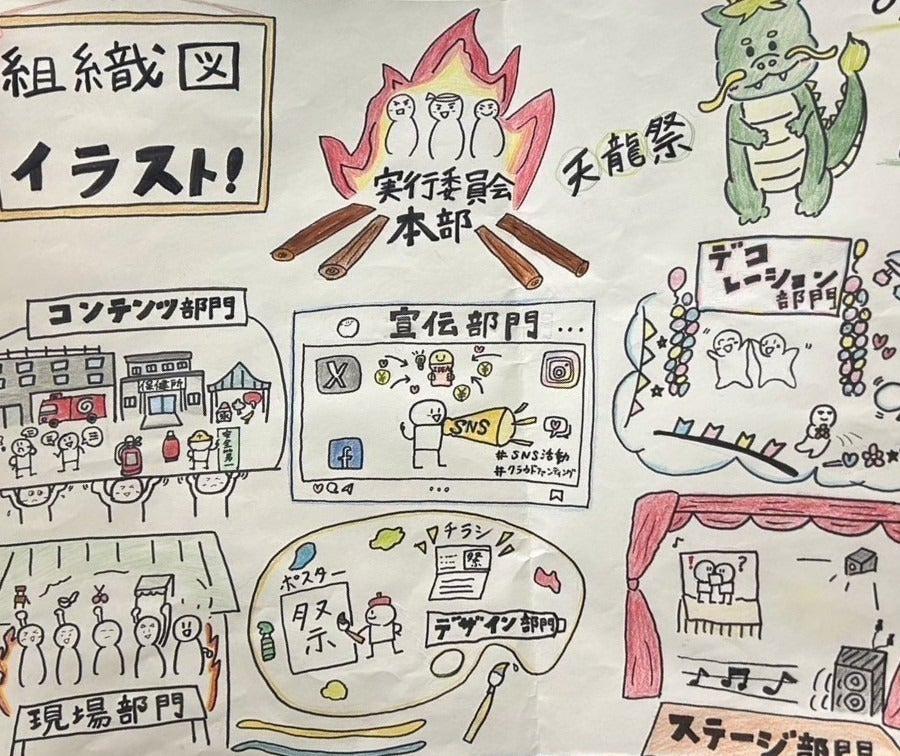 組織図
イラスト!
実行委員会
本部
天龍祭
コンテンツ部門
保健所
安全第一
宣伝部門 ...
X
IDEA
SNS
#SNS活動
#クラウドファンディング
f
デコ
レーション
部門
現場部門
ポスター
祭
チラシ
祭
デザイン部門
! ?
ステージ部門